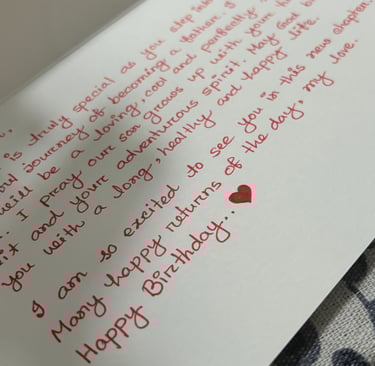 is truly special as you step into
our journey of becoming a father. I
will be a loving, cool and perfectly
I pray our son grows up with your
it and your adventurous spirit. May God
you with a long, healthy and happy life.
I am so excited to see you in this new chapter.
Many happy returns of the day, my love.
Happy Birthday...